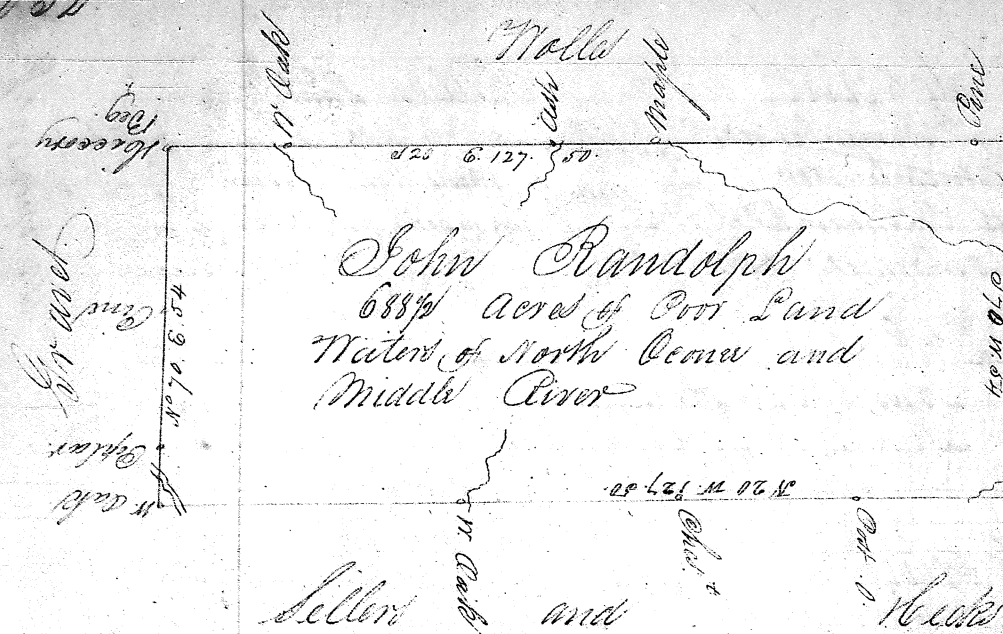 Wolls
W Oak
Ash
Maple
Pine
Hiccory
Beg.
S 20 E. 127. 50.
John Randolph
688½ Acres of Poor Land
Waters of North Oconee and
Middle River
Pine
N 70. E 54
Poplar
W. Oak
N 20 W. 127.50.
70 W. 54
W. Oak
Chest
Post O.
Sillers and Hicks